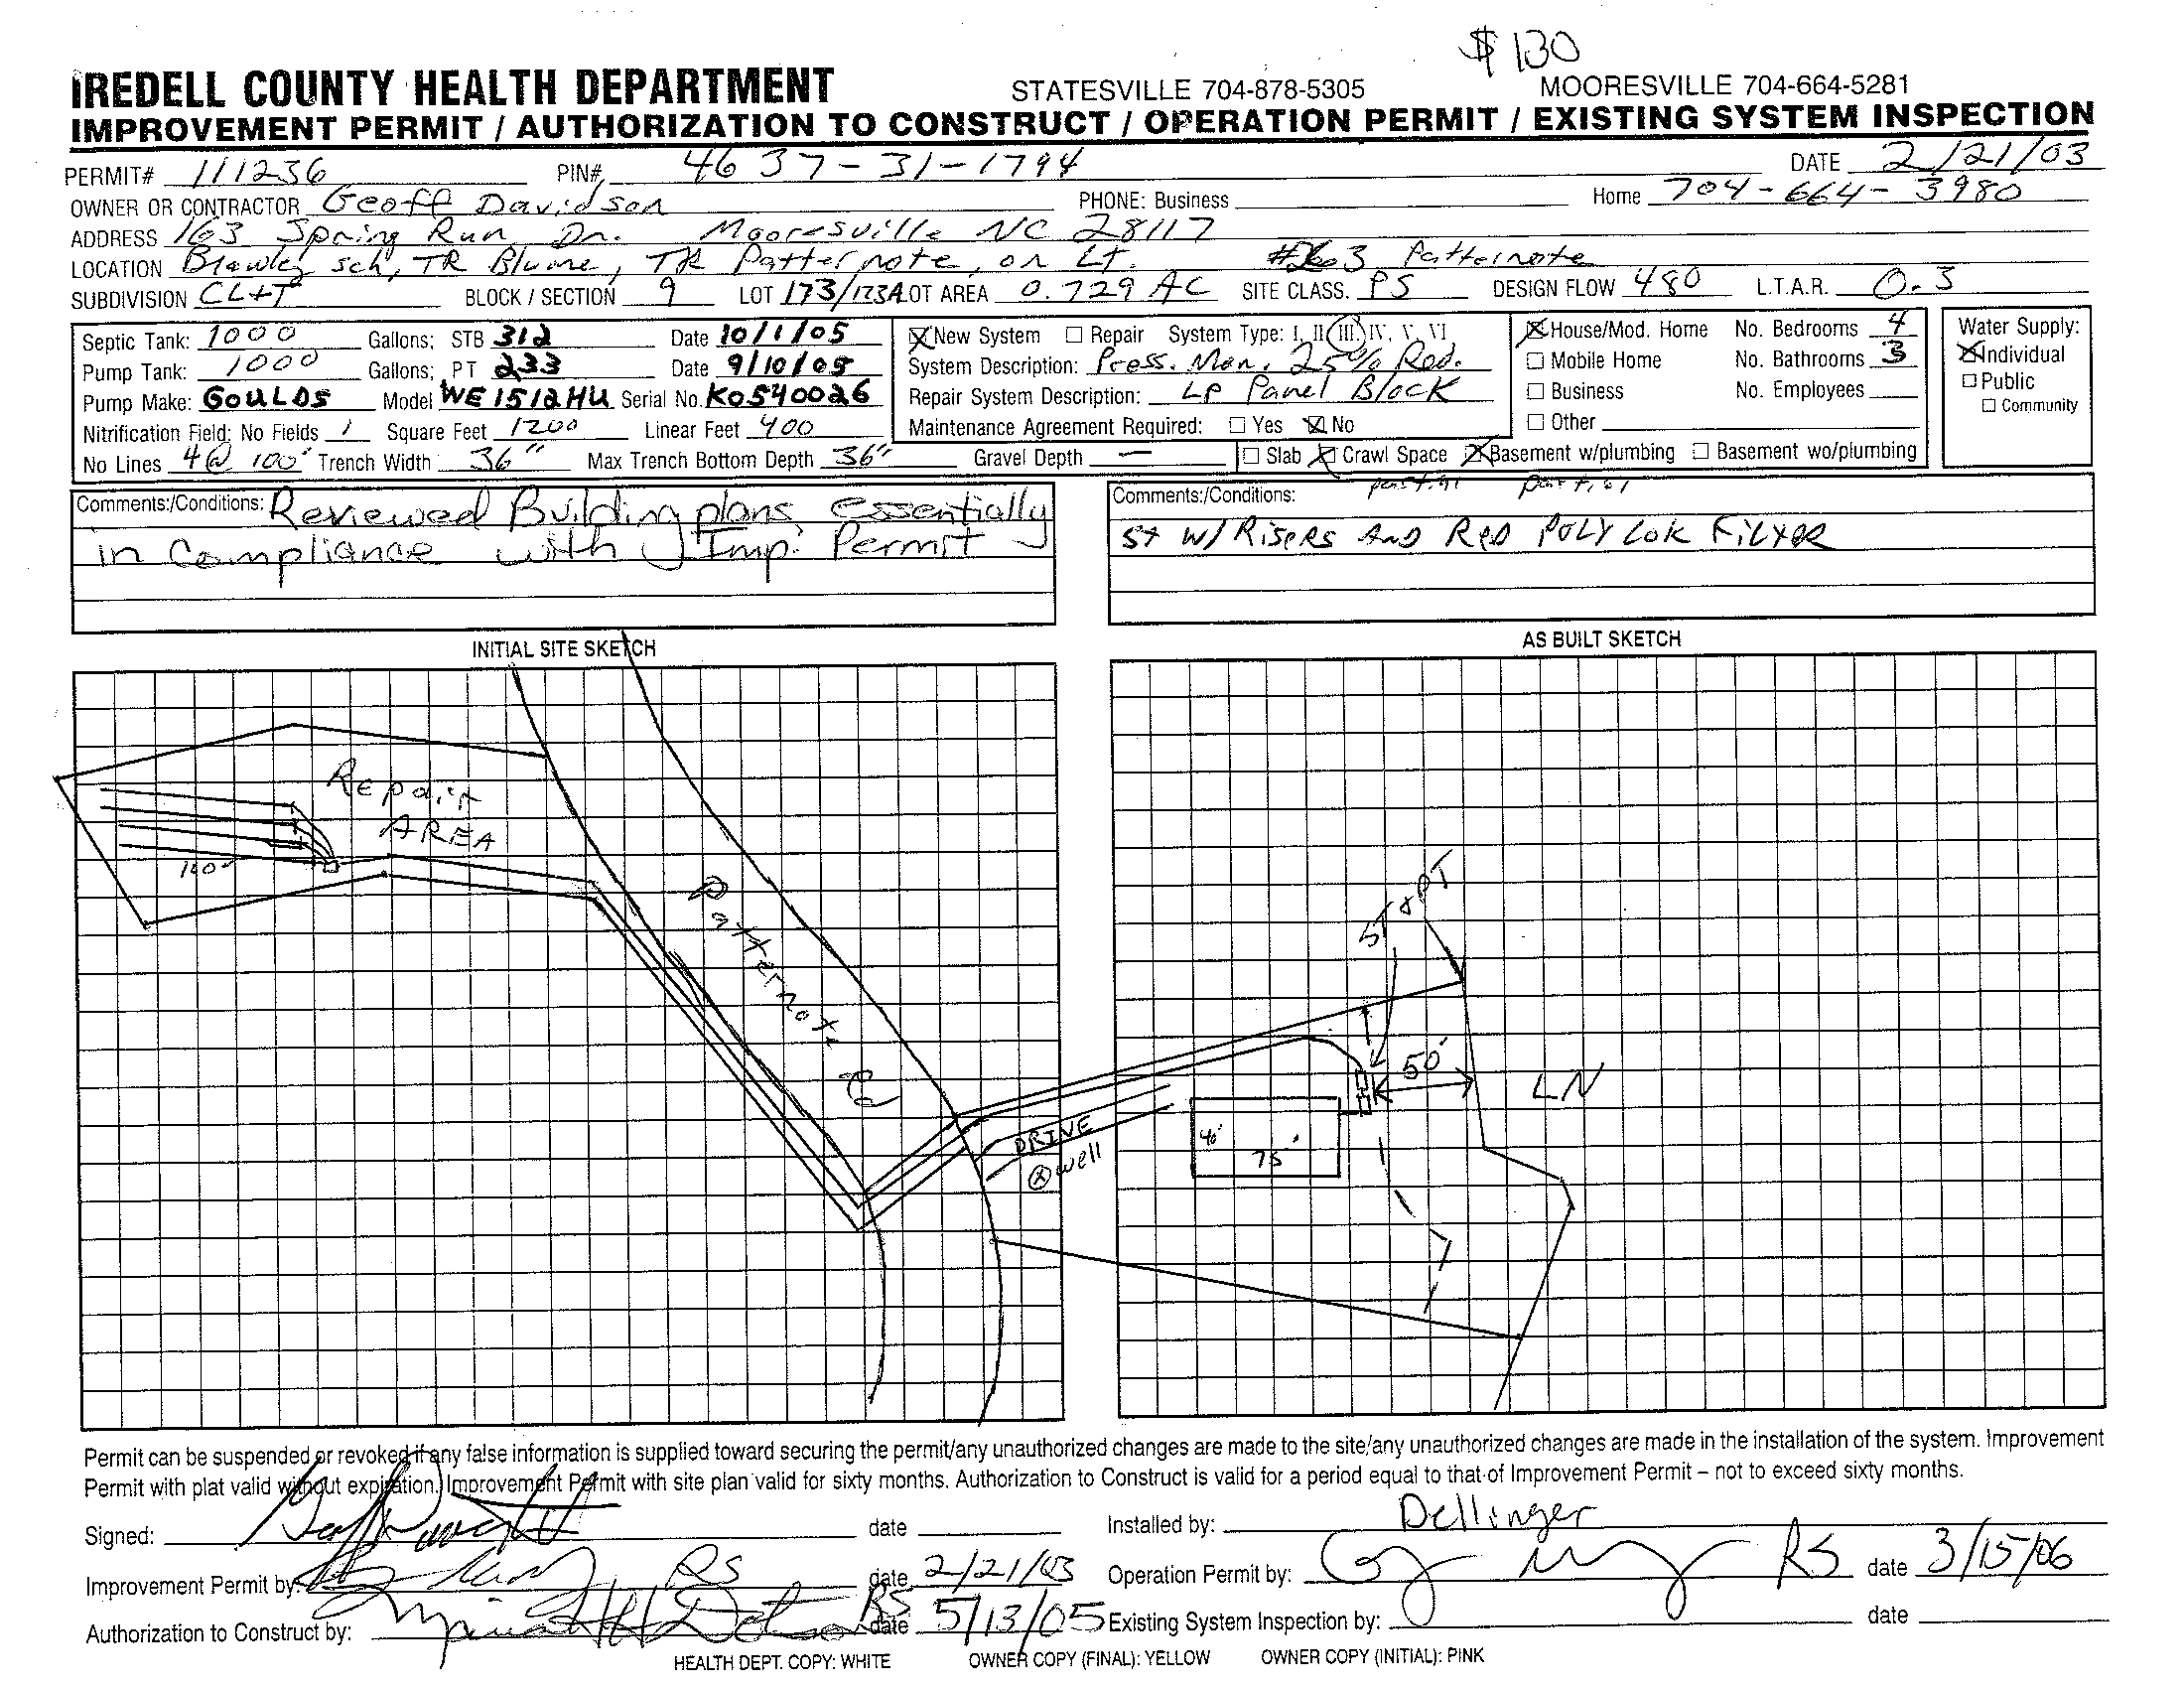 $ 130
IREDELL COUNTY HEALTH DEPARTMENT STATESVILLE 704-878-5305 MOORESVILLE 704-664-5281
IMPROVEMENT PERMIT / AUTHORIZATION TO CONSTRUCT / OPERATION PERMIT / EXISTING SYSTEM INSPECTION
PERMIT# 111236 PIN# 4637-31-1794 DATE 2/21/03
OWNER OR CONTRACTOR Geoff Davidson PHONE: Business Home 704-664-3980
ADDRESS 163 Spring Run Dr. Mooresville NC 28117
LOCATION Brawley Sch, TR Blume, TR Patternote, on Lt. #263 Patternote
SUBDIVISION CL+T BLOCK / SECTION 9 LOT 173/173A LOT AREA 0.729 AC SITE CLASS. PS DESIGN FLOW 480 L.T.A.R. 0.3
Septic Tank: 1000 Gallons; STB 312 Date 10/1/05
Pump Tank: 1000 Gallons; PT 233 Date 9/10/05
Pump Make: GOULDS Model WE1512HU Serial No. K0540026
Nitrification Field: No Fields 1 Square Feet 1200 Linear Feet 400
No Lines 4@ 100' Trench Width 36" Max Trench Bottom Depth 36" Gravel Depth —
New System Repair System Type: I, II, III, IV, V, VI
System Description: Press. Man. 25% Red.
Repair System Description: LP Panel Block
Maintenance Agreement Required: Yes No
Slab Crawl Space Basement w/plumbing Basement wo/plumbing
partial partial
House/Mod. Home No. Bedrooms 4
Mobile Home No. Bathrooms 3
Business No. Employees
Other
Water Supply:
Individual
Public
Community
Comments:/Conditions: Reviewed Building plans, essentially
in Compliance with Imp. Permit
Comments:/Conditions:
ST W/ RISERS AND RED POLY LOK FILTER
INITIAL SITE SKETCH
Repair
AREA
100'
Patternote Rd
DRIVE
well
AS BUILT SKETCH
ST & PT
50'
LN
40'
75'
Permit can be suspended or revoked if any false information is supplied toward securing the permit/any unauthorized changes are made to the site/any unauthorized changes are made in the installation of the system. Improvement
Permit with plat valid without expiration. Improvement Permit with site plan valid for sixty months. Authorization to Construct is valid for a period equal to that of Improvement Permit – not to exceed sixty months.
Signed: date Installed by: Dellinger
Improvement Permit by: RS date 2/21/03 Operation Permit by: RS date 3/15/06
Authorization to Construct by: RS date 5/13/05 Existing System Inspection by: date
HEALTH DEPT. COPY: WHITE OWNER COPY (FINAL): YELLOW OWNER COPY (INITIAL): PINK